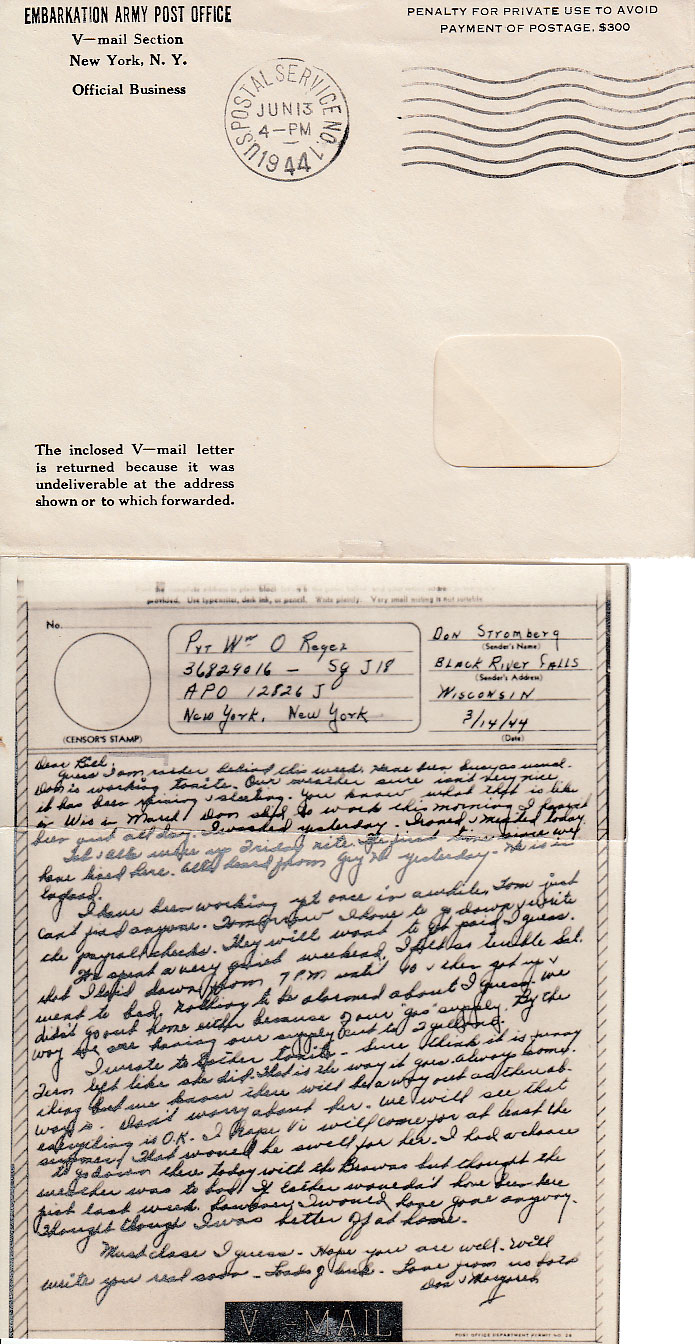 EMBARKATION ARMY POST OFFICE
V—mail Section
New York, N. Y.
Official Business
PENALTY FOR PRIVATE USE TO AVOID
PAYMENT OF POSTAGE, $300
U.S. POSTAL SERVICE NO. 1
JUN 13
4-PM
1944
The inclosed V—mail letter
is returned because it was
undeliverable at the address
shown or to which forwarded.
provided. Use typewriter, dark ink, or pencil. Write plainly. Very small writing is not suitable.
No.
(CENSOR'S STAMP)
Pvt Wm O Reger
36829016 — Sq J 18
APO 12826 J
New York, New York
Don Stromberg
(Sender's Name)
Black River Falls
(Sender's Address)
Wisconsin
3/14/44
(Date)
Dear Bill,
Guess I am rather behind this week. Have been busy as usual.
Don is working tonite. Our weather sure isn't very nice
it has been raining & sleeting. You know what that is like
in Wis in March! Don slid to work this morning. I haven't
been out all day. I washed yesterday. Ironed & mended today.
were up Friday nite. The first time since we
have lived here. heard from Guy yesterday. He is in
England.
I have been working yet once in awhile. Tom just
can't find anyone. Tomorrow I have to go down & write
the payroll checks. They will want to get paid I guess.
We spent a very quiet weekend. I felt so terrible Sat.
that I laid down from 7 P.M. until 10 & then got up &
went to bed. Nothing to be alarmed about I guess. We
didn't go out home either because of our "gas" supply. By the
way we are having our supply cut to 2 gallons.
I wrote to Esther tonite. Sure think it is funny
left like she did. That is the way it goes always some-
thing but we know there will be a way out as there al-
ways is. Don't worry about her. We will see that
everything is O.K. I hope Vi will come for at least the
summer. That would be swell for her. I had a chance
to go down there today with the Browns but thought the
weather was to bad. If Esther wouldn't have been here
just last week however I would have gone anyway.
Thought though I was better off at home.
Must close I guess. Hope you are well. Will
write you real soon. Loads of luck. Love from us both
Don & Margaret
V - MAIL
POST OFFICE DEPARTMENT PERMIT NO. 28